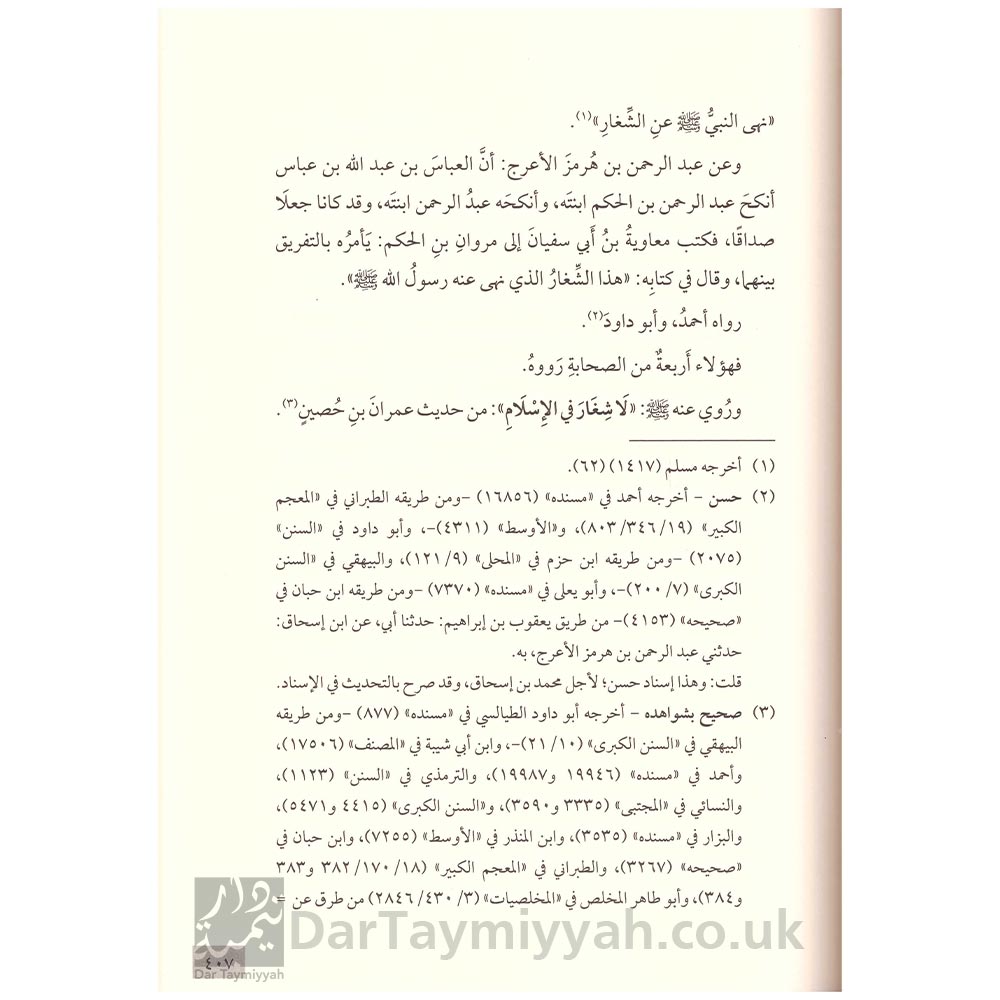 «نهى النبيُّ ﷺ عنِ الشِّغارِ»(١).
وعن عبد الرحمن بن هُرمزَ الأعرج: أنَّ العباسَ بن عبد الله بن عباس
أنكحَ عبد الرحمن بن الحكم ابنتَه، وأنكحَه عبدُ الرحمن ابنتَه، وقد كانا جعلَا
صداقًا، فكتب معاويةُ بنُ أَبي سفيانَ إلى مروانِ بنِ الحكم: يَأمرُه بالتفريق
بينهما، وقال في كتابِه: «هذا الشِّغارُ الذي نهى عنه رسولُ الله ﷺ».
رواه أحمدُ، وأبو داودَ(٢).
فهؤلاء أَربعةٌ من الصحابةِ رَووهُ.
ورُوي عنه ﷺ: «لَا شِغَارَ في الإِسْلَامِ»: من حديث عمرانَ بنِ حُصينٍ(٣).
(١) أخرجه مسلم (١٤١٧) (٦٢).
(٢) حسن – أخرجه أحمد في «مسنده» (١٦٨٥٦) –ومن طريقه الطبراني في «المعجم
الكبير» (١٩/ ٣٤٦/ ٨٠٣)، و«الأوسط» (٤٣١١)–، وأبو داود في «السنن»
(٢٠٧٥) –ومن طريقه ابن حزم في «المحلى» (٩/ ١٢١)، والبيهقي في «السنن
الكبرى» (٧/ ٢٠٠)–، وأبو يعلى في «مسنده» (٧٣٧٠) –ومن طريقه ابن حبان في
«صحيحه» (٤١٥٣)– من طريق يعقوب بن إبراهيم: حدثنا أبي، عن ابن إسحاق:
حدثني عبد الرحمن بن هرمز الأعرج، به.
قلت: وهذا إسناد حسن؛ لأجل محمد بن إسحاق، وقد صرح بالتحديث في الإسناد.
(٣) صحيح بشواهده – أخرجه أبو داود الطيالسي في «مسنده» (٨٧٧) –ومن طريقه
البيهقي في «السنن الكبرى» (١٠/ ٢١)–، وابن أبي شيبة في «المصنف» (١٧٥٠٦)،
وأحمد في «مسنده» (١٩٩٤٦ و١٩٩٨٧)، والترمذي في «السنن» (١١٢٣)،
والنسائي في «المجتبى» (٣٣٣٥ و٣٥٩٠)، و«السنن الكبرى» (٤٤١٥ و٥٤٧١)،
والبزار في «مسنده» (٣٥٣٥)، وابن المنذر في «الأوسط» (٧٢٥٥)، وابن حبان في
«صحيحه» (٣٢٦٧)، والطبراني في «المعجم الكبير» (١٨/ ١٧٠/ ٣٨٢ و٣٨٣
و٣٨٤)، وأبو طاهر المخلص في «المخلصيات» (٣/ ٤٣٠/ ٢٨٤٦) من طرق عن =
دار تيمية
DarTaymiyyah.co.uk
٤٠٧
Dar Taymiyyah